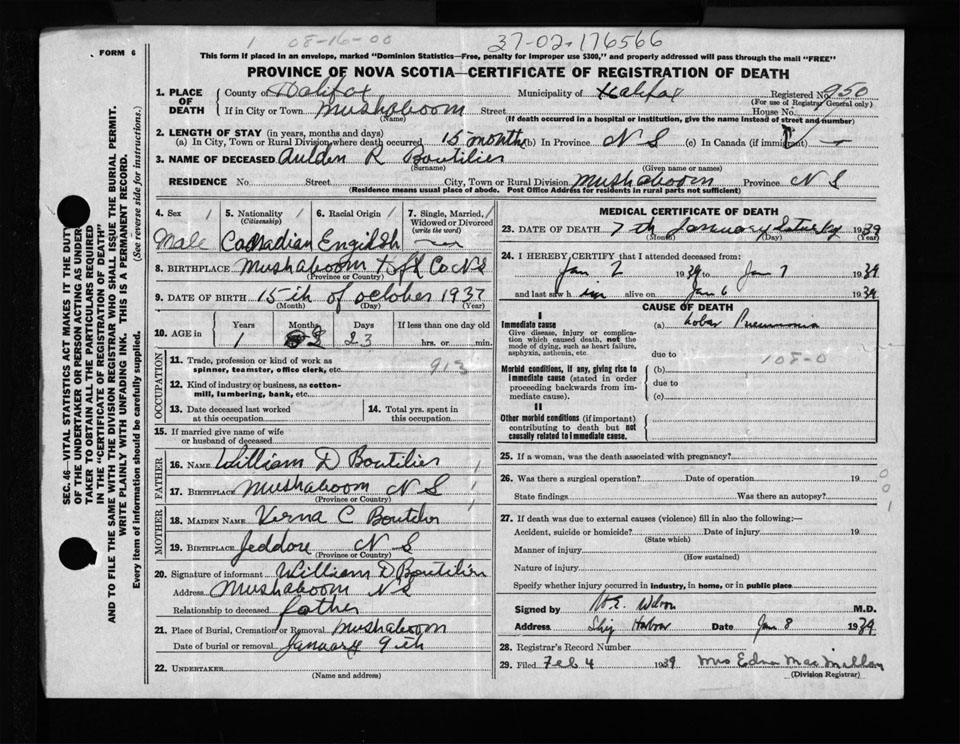 1 08-16-00 37-02-176566
FORM 6
This form if placed in an envelope, marked "Dominion Statistics—Free, penalty for improper use $300," and properly addressed will pass through the mail "FREE"
PROVINCE OF NOVA SCOTIA—CERTIFICATE OF REGISTRATION OF DEATH
SEC. 46—VITAL STATISTICS ACT MAKES IT THE DUTY
OF THE UNDERTAKER OR PERSON ACTING AS UNDER-
TAKER TO OBTAIN ALL THE PARTICULARS REQUIRED
IN THE "CERTIFICATE OF REGISTRATION OF DEATH"
AND TO FILE THE SAME WITH THE DIVISION REGISTRAR WHO SHALL ISSUE THE BURIAL PERMIT.
WRITE PLAINLY WITH UNFADING INK. THIS IS A PERMANENT RECORD.
Every item of information should be carefully supplied. (See reverse side for instructions.)
1. PLACE OF DEATH County of Halifax Municipality of Halifax Registered No. 950
(For use of Registrar General only)
If in City or Town Mushaboom Street House No.
(Name) (If death occurred in a hospital or institution, give the name instead of street and number)
2. LENGTH OF STAY (in years, months and days)
(a) In City, Town or Rural Division where death occurred 15 months (b) In Province N S (c) In Canada (if immigrant) —
3. NAME OF DECEASED Aulden R Boutilier
(Surname) (Given name or names)
RESIDENCE No. Street City, Town or Rural Division Mushaboom Province N S
(Residence means usual place of abode. Post Office Address for residents in rural parts not sufficient)
4. Sex Male
5. Nationality (Citizenship) Canadian
6. Racial Origin English
7. Single, Married, Widowed or Divorced (write the word)
8. BIRTHPLACE Mushaboom Hfx Co N S
(Province or Country)
9. DATE OF BIRTH 15th of october 1937
(Month) (Day) (Year)
10. AGE in Years Months Days If less than one day old
1 2 23 hrs. or min.
OCCUPATION
11. Trade, profession or kind of work as spinner, teamster, office clerk, etc. 913
12. Kind of industry or business, as cotton-mill, lumbering, bank, etc.
13. Date deceased last worked at this occupation
14. Total yrs. spent in this occupation
15. If married give name of wife or husband of deceased
FATHER
16. NAME William D Boutilier
17. BIRTHPLACE Mushaboom N S
(Province or Country)
MOTHER
18. MAIDEN NAME Verna C Boutilier
19. BIRTHPLACE Jeddore N S
(Province or Country)
20. Signature of informant William D Boutilier
Address Mushaboom N S
Relationship to deceased father
21. Place of Burial, Cremation or Removal Mushaboom
Date of burial or removal January 9th
22. UNDERTAKER
(Name and address)
MEDICAL CERTIFICATE OF DEATH
23. DATE OF DEATH 7th January 1939
(Month) (Day) (Year)
24. I HEREBY CERTIFY that I attended deceased from:
Jan 2 1939 to Jan 7 1939
and last saw h im alive on Jan 6 1939
CAUSE OF DEATH
I
Immediate cause (a) Lobar Pneumonia
Give disease, injury or complication which caused death, not the mode of dying, such as heart failure, asphyxia, asthenia, etc.
due to 108-0
Morbid conditions, if any, giving rise to immediate cause (stated in order proceeding backwards from immediate cause). (b)
due to
(c)
II
Other morbid conditions (if important) contributing to death but not causally related to immediate cause.
25. If a woman, was the death associated with pregnancy?
26. Was there a surgical operation? Date of operation 19
State findings Was there an autopsy?
001
27. If death was due to external causes (violence) fill in also the following:—
Accident, suicide or homicide? Date of injury 19
(State which)
Manner of injury
(How sustained)
Nature of injury
Specify whether injury occurred in industry, in home, or in public place
Signed by Wilson M.D.
Address Ship Harbor Date Jan 8 1939
28. Registrar's Record Number
29. Filed Feb 4 1939 Mrs Edna MacMillan
(Division Registrar)